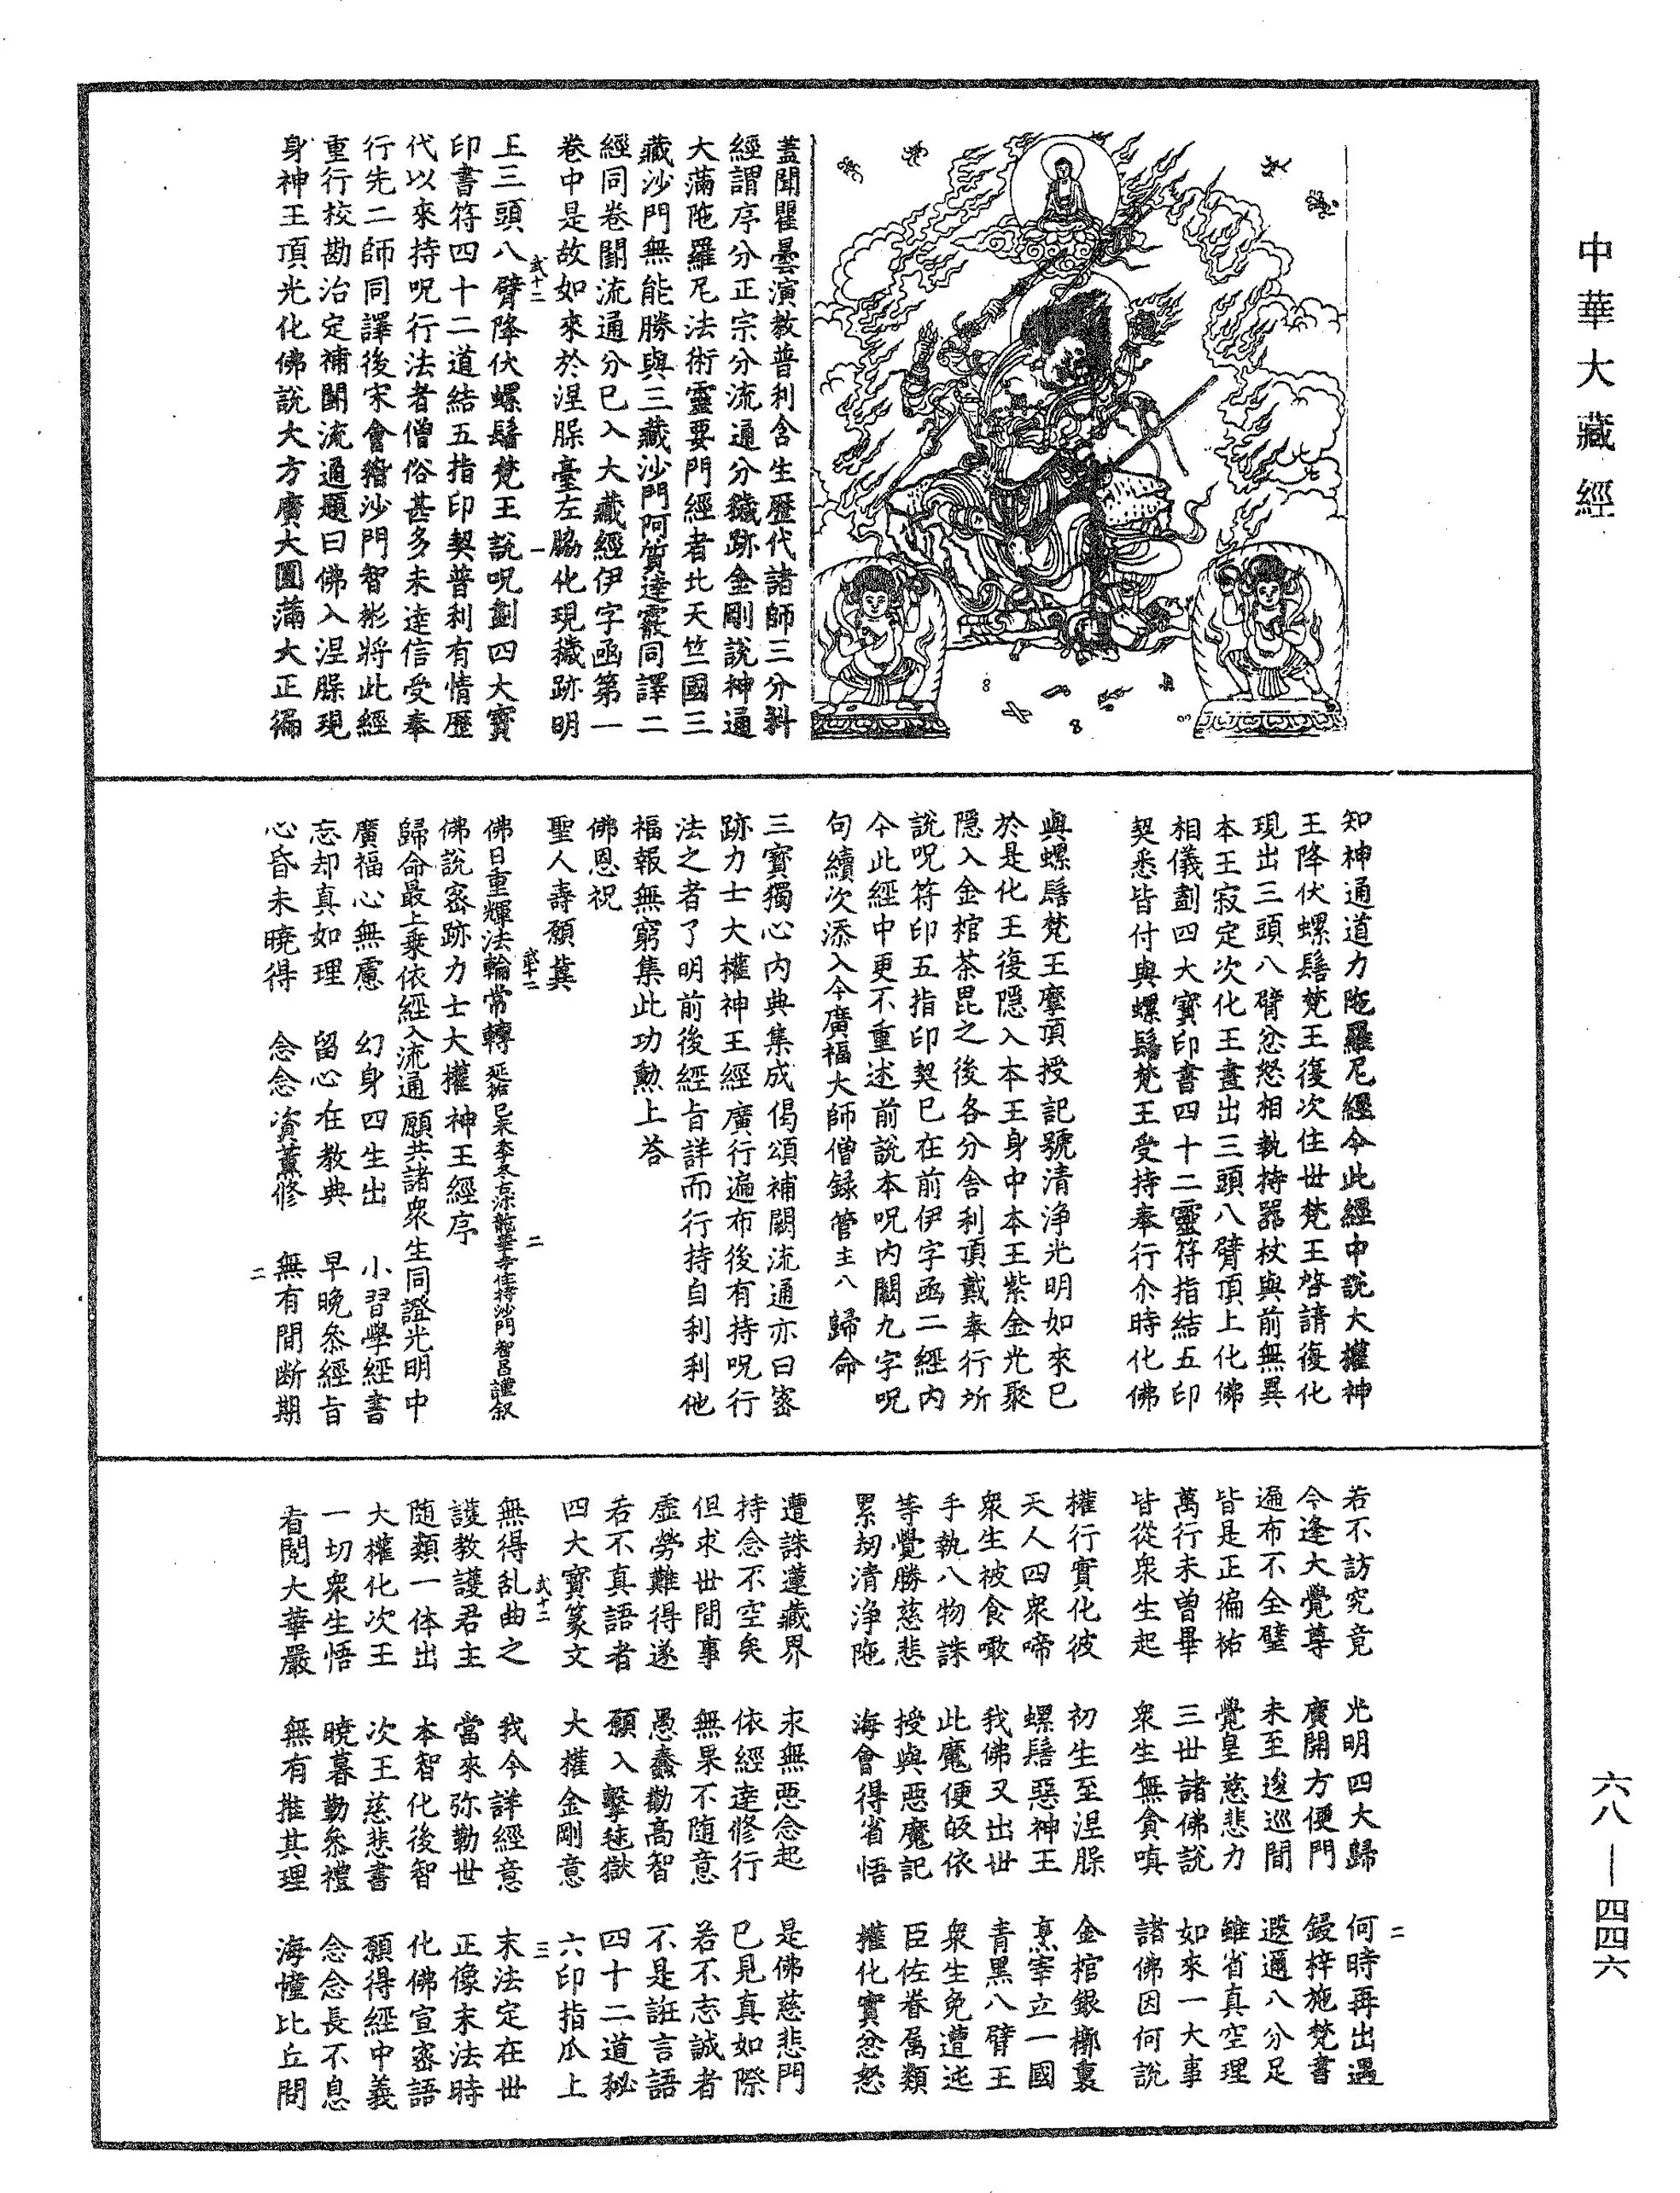 中華大藏經
蓋聞瞿曇演教普利含生歷代諸師三分科
經謂序分正宗分流通分穢跡金剛說神通
大滿陁羅尼法術靈要門經者北天竺國三
藏沙門無能勝與三藏沙門阿質達霰同譯二
經同卷闕流通分已入大藏經伊字函第一
卷中是故如來於涅槃臺左脇化現穢跡明
王三頭八臂降伏螺髻梵王說呪劃四大寶
印書符四十二道結五指印契普利有情歷
代以來持呪行法者僧俗甚多未達信受奉
行先二師同譯後宋會稽沙門智彬將此經
重行校勘治定補闕流通題曰佛入涅槃現
身神王頂光化佛說大方廣大圓滿大正徧
知神通道力陁羅尼經今此經中說大權神
王降伏螺髻梵王復次住世梵王啓請復化
現出三頭八臂忿怒相執持器杖與前無異
本王寂定次化王畫出三頭八臂頂上化佛
相儀劃四大寶印書四十二靈符指結五印
契悉皆付與螺髻梵王受持奉行尒時化佛
與螺髻梵王摩頂授記號清淨光明如來已
於是化王復隱入本王身中本王紫金光聚
隱入金棺茶毘之後各分舍利頂戴奉行所
說呪符印五指印契已在前伊字函二經內
今此經中更不重述前說本呪內闕九字呪
句續次添入今廣福大師僧録管主八歸命
三寶獨心內典集成偈頌補闕流通亦曰宻
跡力士大權神王經廣行遍布後有持呪行
法之者了明前後經旨詳而行持自利利他
福報無窮集此功勲上荅
佛恩祝
聖人壽願冀
佛日重輝法輪常轉延祐己未季冬凉龍華寺住持沙門智昌謹叙
佛說宻跡力士大權神王經序
歸命最上乗依經入流通 願共諸衆生同證光明中
廣福心無慮 幻身四生出 小習學經書
忘却真如理 留心在教典 早晚叅經旨
心昏未曉得 念念資薰修 無有間断期
若不訪究竟 光明四大歸 何時再出遇
今逢大覺尊 廣開方便門 鋟梓施梵書
遍布不全璧 未至逡巡間 遐邇八分足
皆是正徧祐 覺皇慈悲力 雖省真空理
萬行未曾畢 三世諸佛說 如來一大事
皆從衆生起 衆生無貪嗔 諸佛因何說
權行實化彼 初生至涅槃 金棺銀槨裏
天人四衆啼 螺髻惡神王 烹宰立一國
衆生被食噉 我佛又出世 青黑八臂王
手執八物誅 此魔便皈依 衆生免遭迍
等覺勝慈悲 授與惡魔記 臣佐眷属類
累劫清淨陁 海會得省悟 權化實忿怒
遭誅蓮藏界 求無惡念起 是佛慈悲門
持念不空矣 依經達修行 已見真如際
但求世間事 無果不随意 若不志誠者
虛勞難得遂 愚蠢勸高智 不是誑言語
若不真語者 願入擊毬獄 四十二道秘
四大寶篆文 大權金剛意 六印指爪上
無得乱曲之 我今詳經意 末法定在世
護教護君主 當來弥勒世 正像末法時
随類一体出 本智化後智 化佛宣宻語
大權化次王 次王慈悲書 願得經中義
一切衆生悟 曉暮勤叅禮 念念長不息
看閱大華嚴 無有推其理 海幢比丘問
六八—四四六